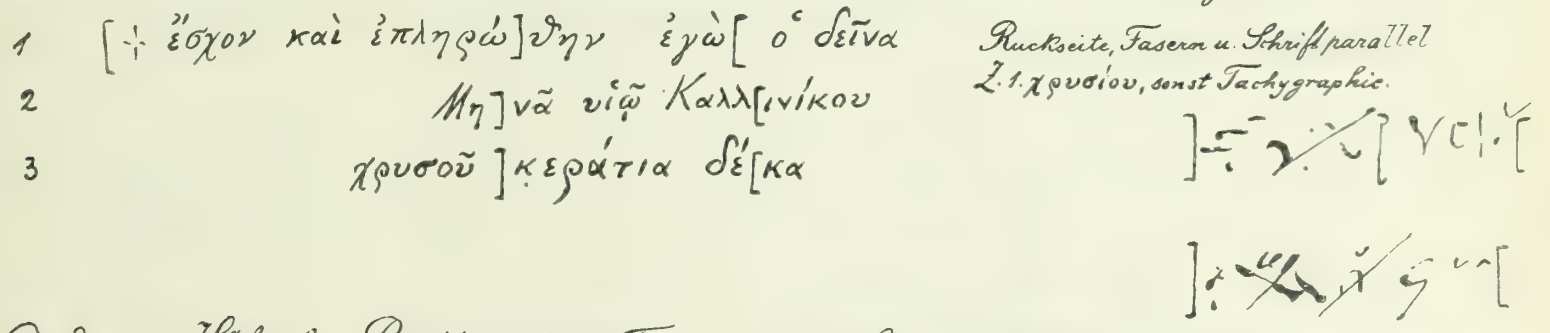 1 [⳨ ἔσχον καὶ ἐπληρώ]θην ἐγὼ[ ὁ δεῖνα
2 Μη]νᾶ υἱῷ Καλλ[ινίκου
3 χρυσοῦ ]κ̣εράτια δέ[κα
Rückseite, Fasern u. Schrift parallel
Z. 1. χρυσίου, sonst Tachygraphie.